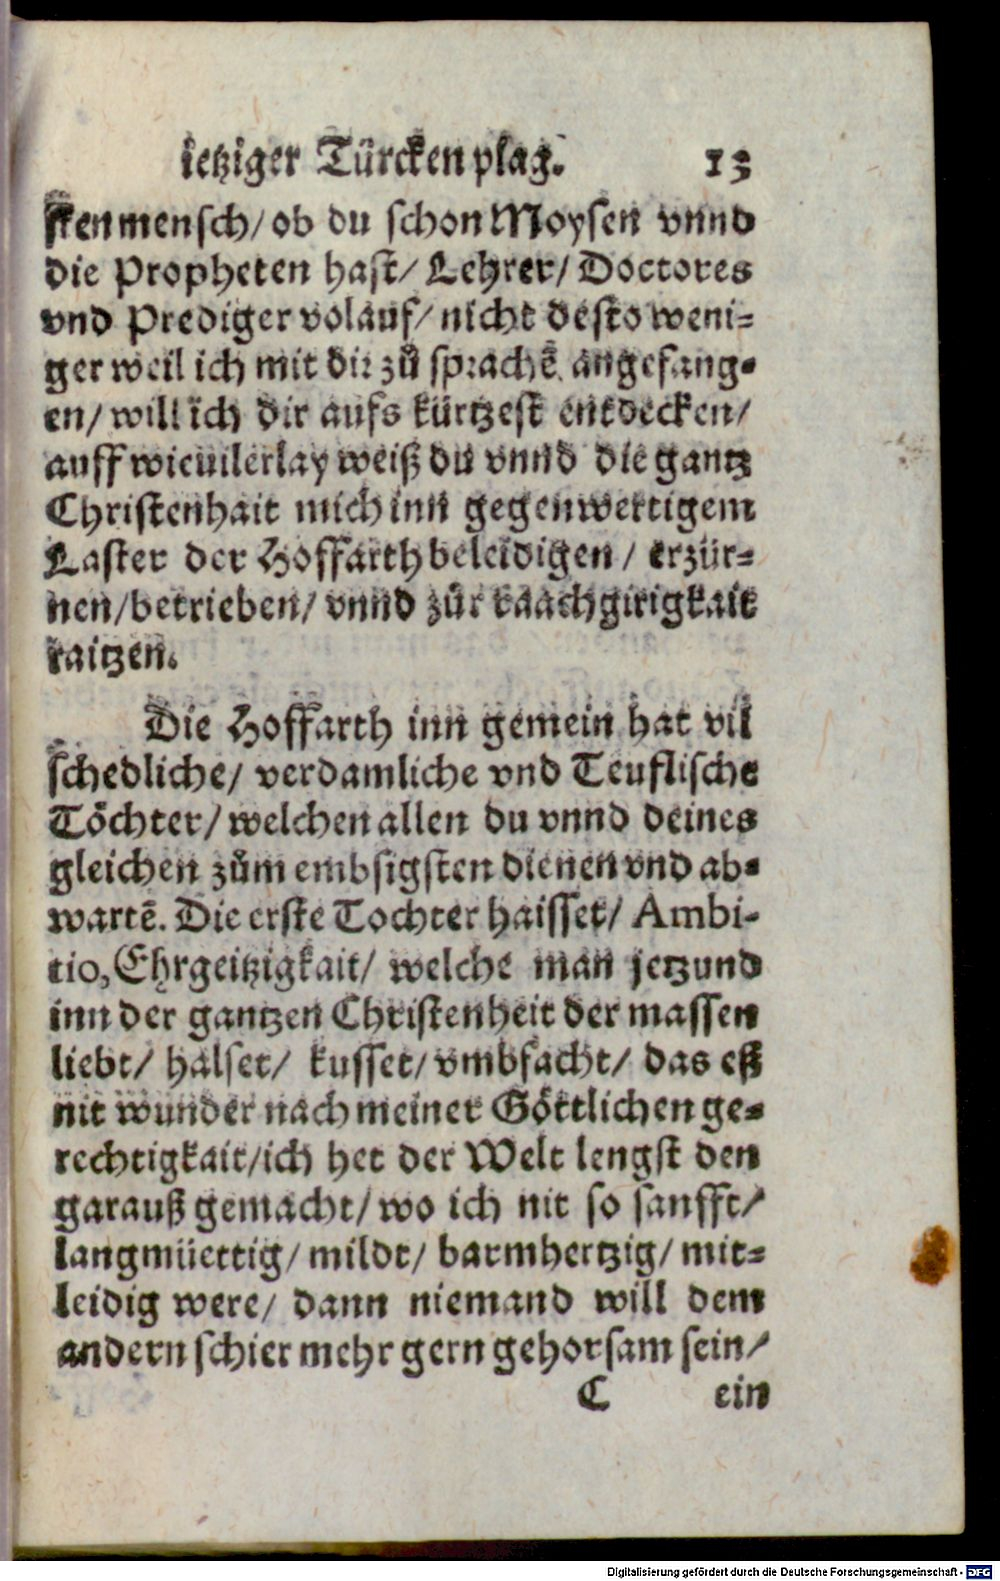 ietziger Türcken plag. 13
sten mensch/ ob du schon Moysen vnnd
die Propheten hast/ Lehrer/ Doctores
vnd Prediger volauf/ nicht desto weni-
ger weil ich mit dir zů sprachẽ angefang-
en/ will ich dir aufs kürtzest entdecken/
auff wieuilerlay weiß du vnnd die gantz
Christenhait mich inn gegenwertigem
Laster der Hoffarth beleidigen/ erzür-
nen/ betrieben/ vnnd zůr raachgirigkait
raitzen.
Die Hoffarth inn gemein hat vil
schedliche/ verdamliche vnd Teuflische
Töchter/ welchen allen du vnnd deines
gleichen zům embsigsten dienen vnd ab-
wartẽ. Die erste Tochter haisset/ Ambi-
tio, Ehrgeitzigkait/ welche man jetzund
inn der gantzen Christenheit der massen
liebt/ halset/ kusset/ vmbfacht/ das eß
nit wunder nach meiner Göttlichen ge-
rechtigkait/ ich het der Welt lengst den
garauß gemacht/ wo ich nit so sanfft/
langmüettig/ mildt/ barmhertzig/ mit-
leidig were/ dann niemand will dem
andern schier mehr gern gehorsam sein/
C ein
Digitalisierung gefördert durch die Deutsche Forschungsgemeinschaft - DFG